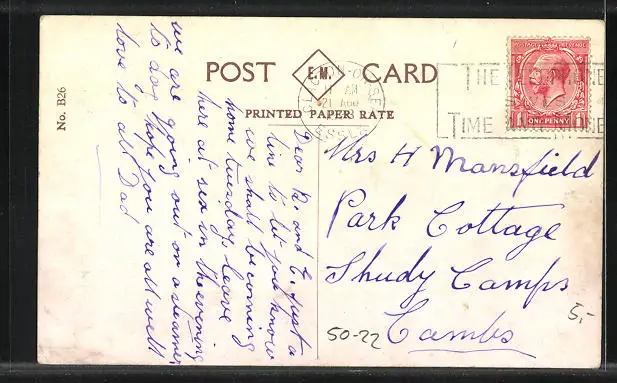 POST E.M. CARD
PRINTED PAPER RATE
No. B26
POSTAGE REVENUE
ONE PENNY
THE TELEPHONE
TIME
ESSEX
21 AUG
AM
Dear B. and C. Just a
line to let you know
we shall be coming
home tuesday. leave
here at six in the evening
we are going out on a steamer
to day hope you are all well
love to all Dad
Mrs H Mansfield
Park Cottage
Shudy Camps
Cambs
50-22
5,-